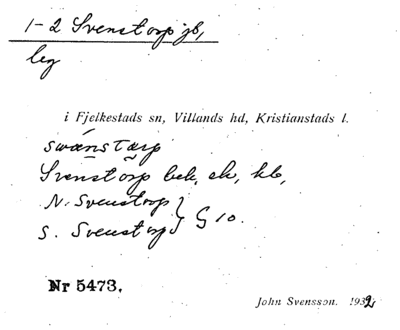 1-2 Svenstorp jb,
leg
i Fjelkestads sn, Villands hd, Kristianstads l.
swænstarp
Svenstorp bek, ek, kb,
N. Svenstorp
S. Svenstorp } G 10.
Nr 5473.
John Svensson. 1932